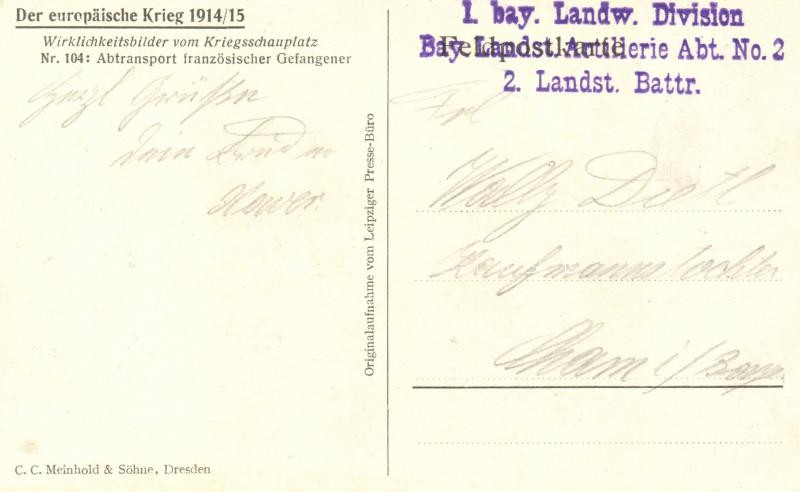 Der europäische Krieg 1914/15
Wirklichkeitsbilder vom Kriegsschauplatz
Nr. 104: Abtransport französischer Gefangener
Herzl Grüße
dein Bruder
Originalaufnahme vom Leipziger Presse-Büro
C. C. Meinhold & Söhne, Dresden
1. bay. Landw. Division
Feldpostkarte
Bay. Landst. Artillerie Abt. No. 2
2. Landst. Battr.
Frl
Wally Dietl
Kaufmannstochter
Cham i/Bay.